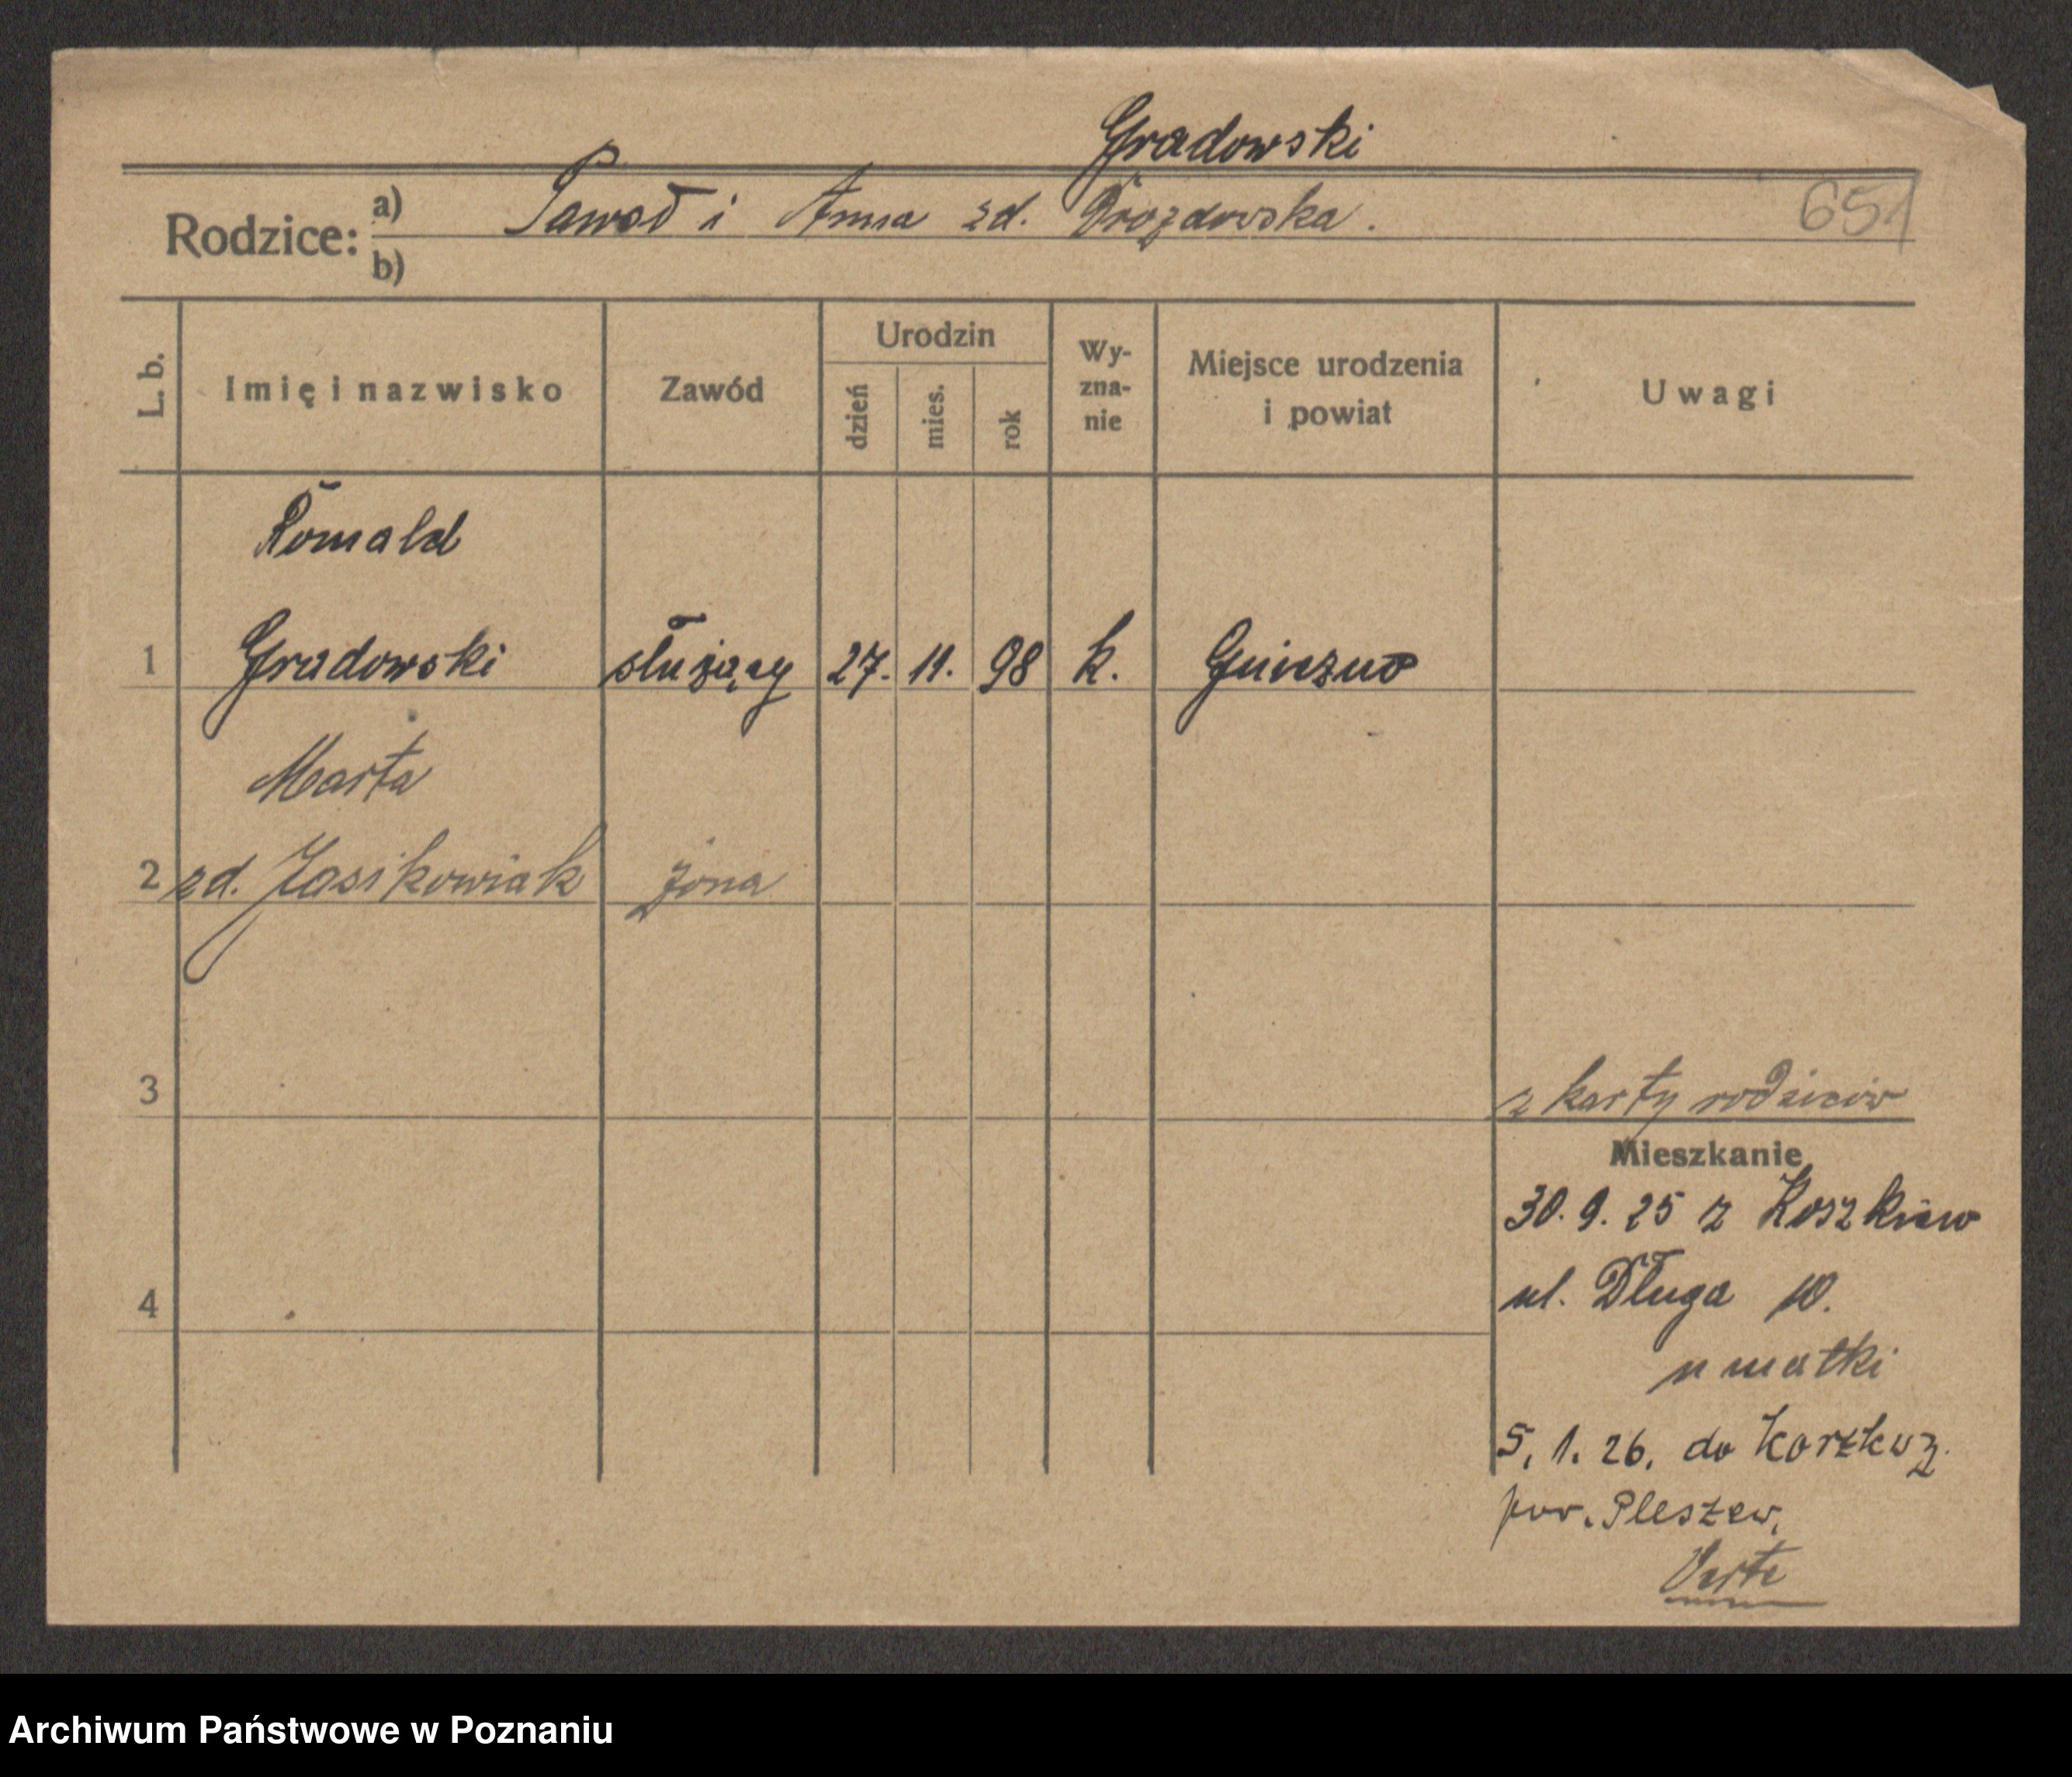 Gradowski
Rodzice: a) Paweł i Anna zd. Drozdowska. 651
b)
L. b. Imię i nazwisko Zawód Urodzin dzień mies. rok Wy-zna-nie Miejsce urodzenia i powiat Uwagi
Romald
1 Gradowski służący 27. 11. 98 k. Gniezno
Marta
2 zd. Jasikowiak żona
3 z karty rodziców
Mieszkanie
30. 9. 25 z Koszkiew
4 ul. Długa 10.
u matki
5. 1. 26. do
pow. Pleszew.
Verte
Archiwum Państwowe w Poznaniu